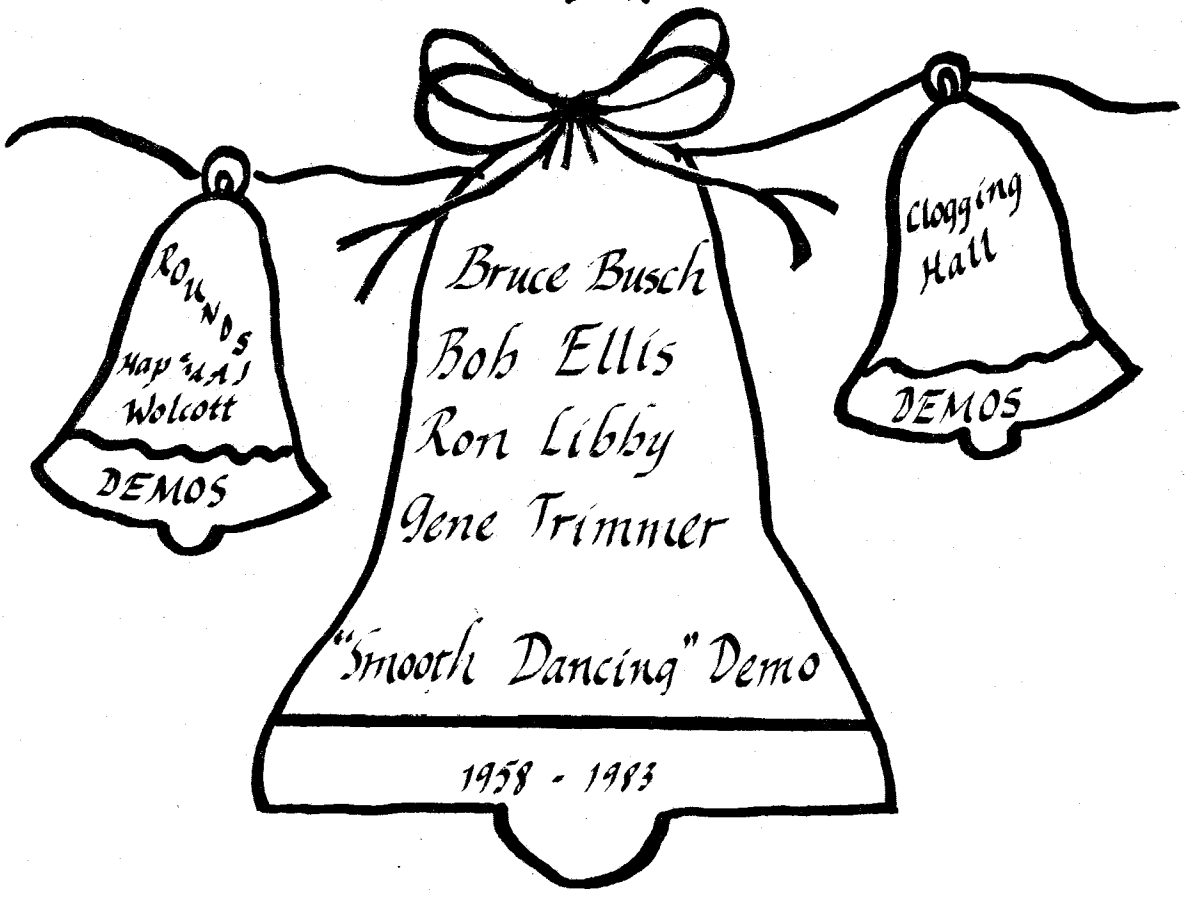 ROUNDS
Hap and AJ
Wolcott
DEMOS
Bruce Busch
Bob Ellis
Ron Libby
Gene Trimmer
"Smooth Dancing" Demo
1958 - 1983
Clogging
Hall
DEMOS